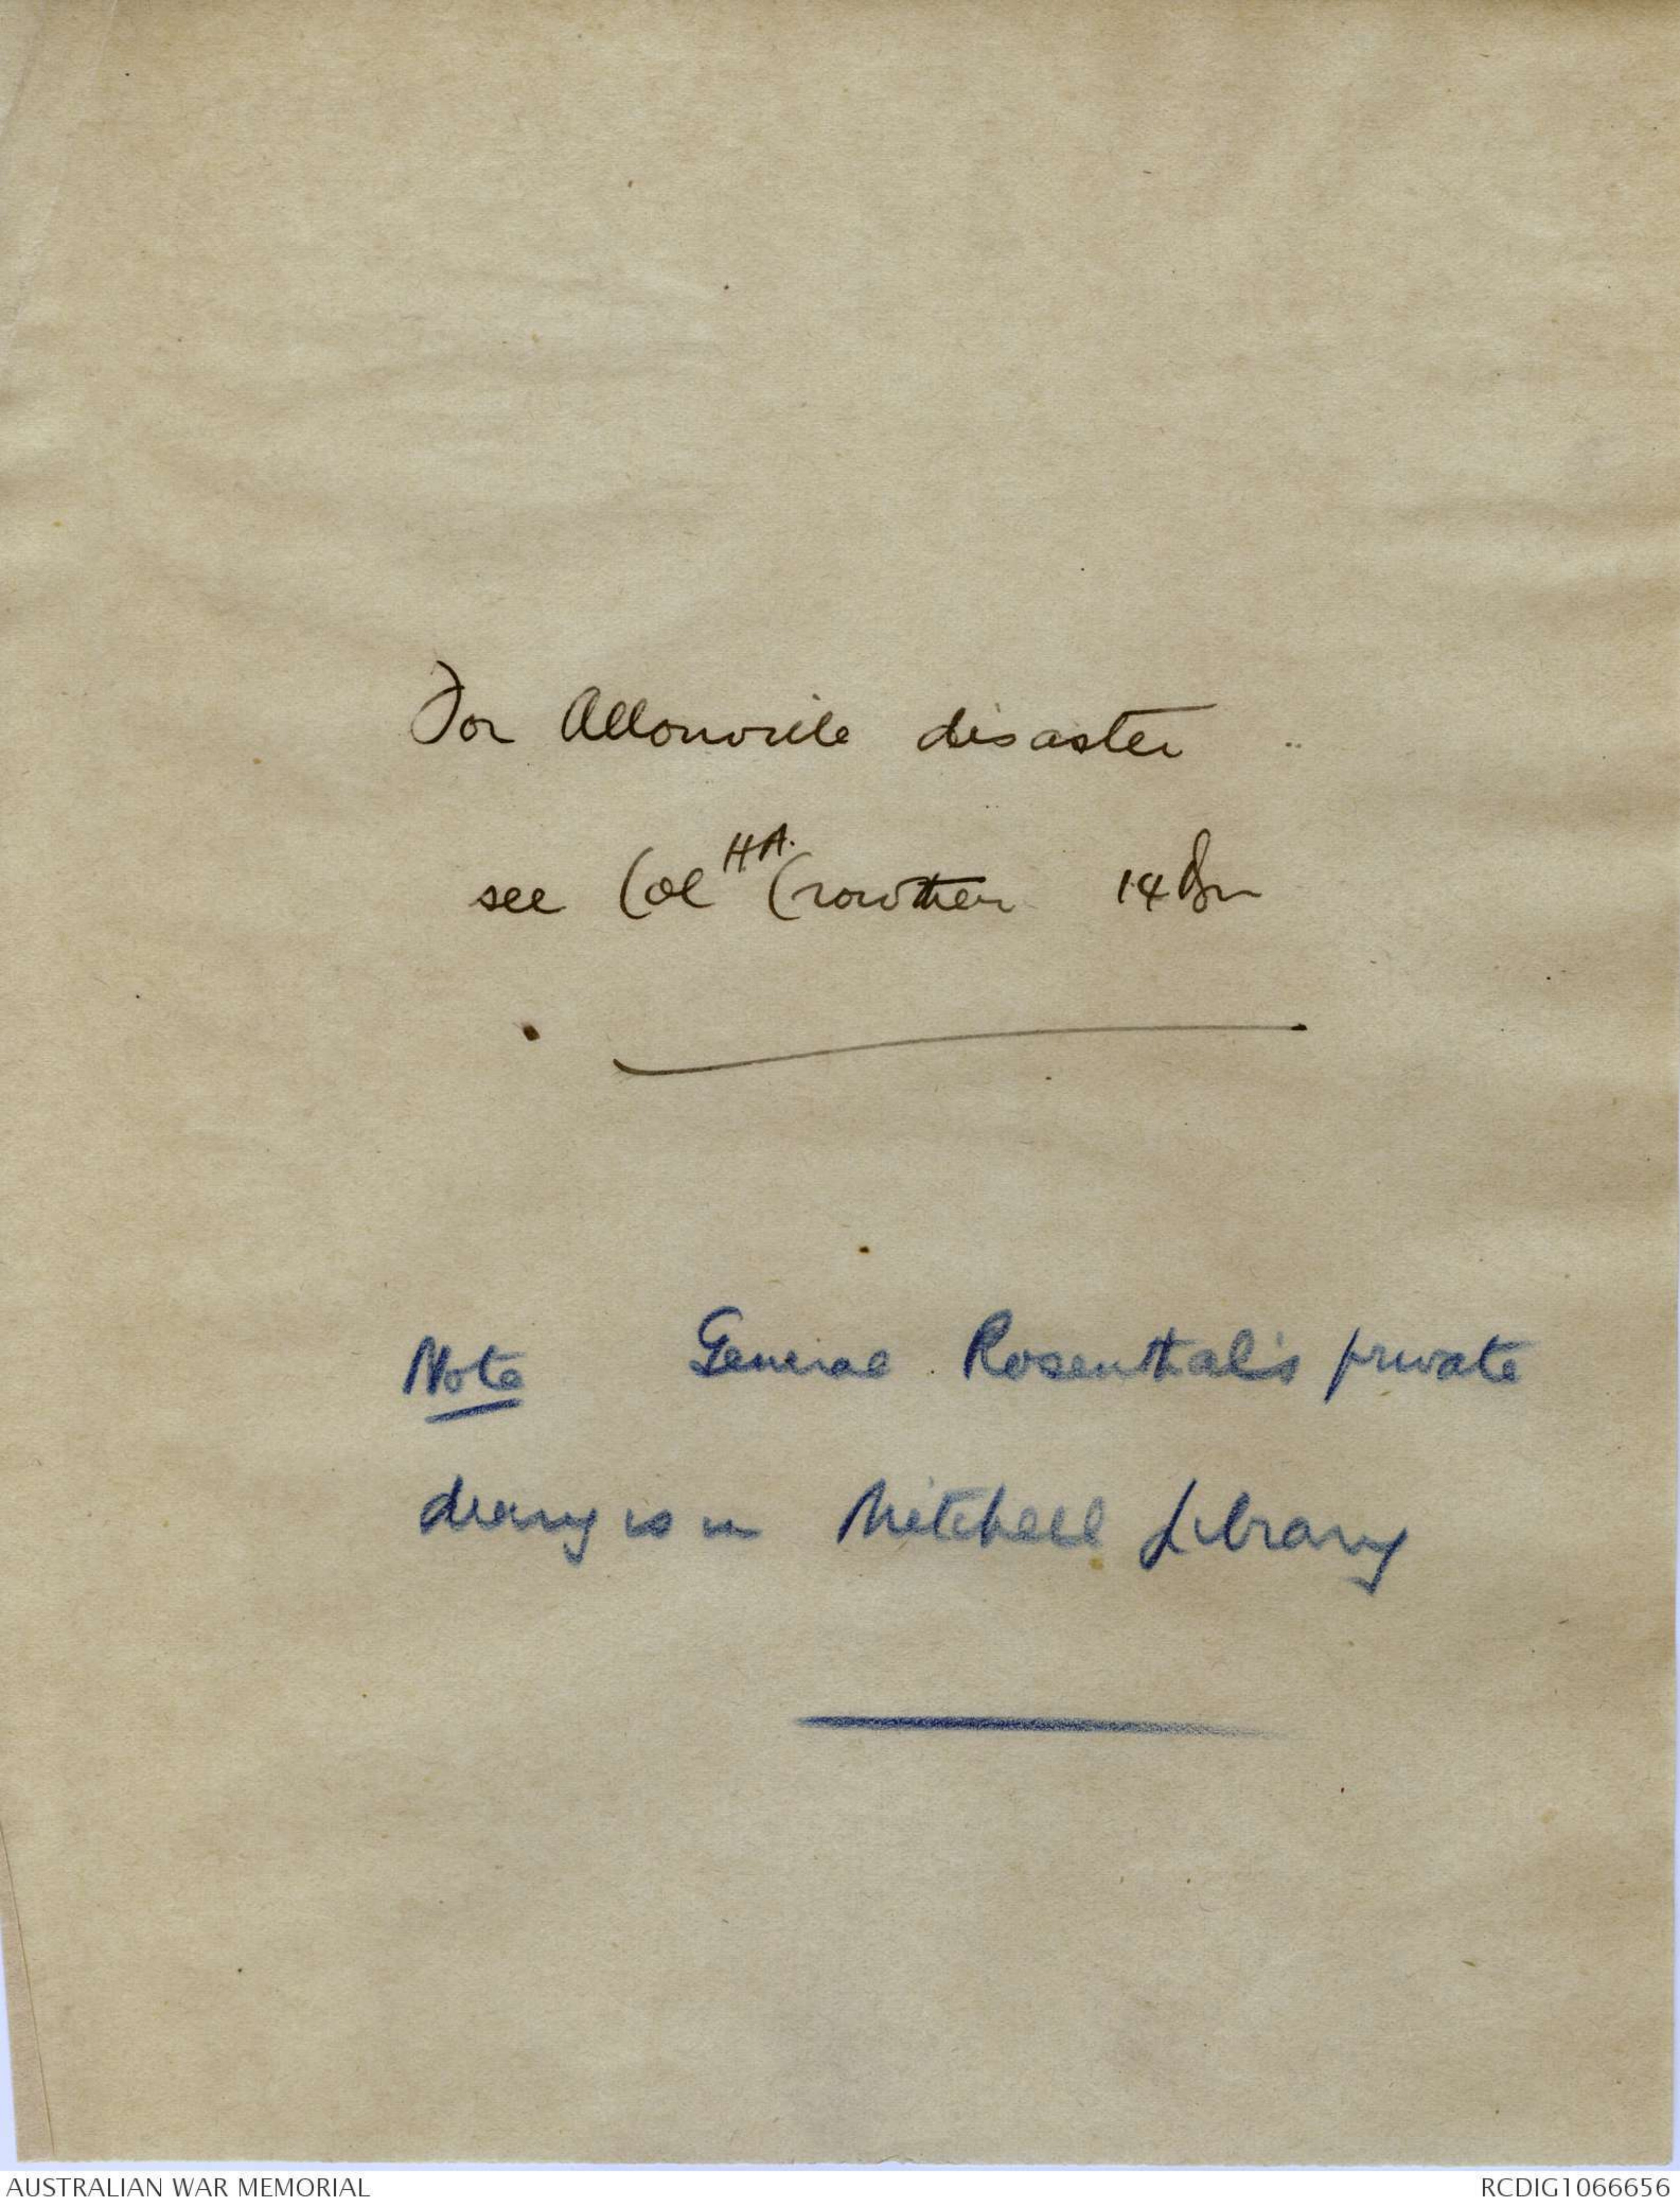 For Allonville disaster
see Col H.A. Crowther 14 Bn
Note General Rosenthal's private
diary is in Mitchell Library
AUSTRALIAN WAR MEMORIAL
RCDIG1066656